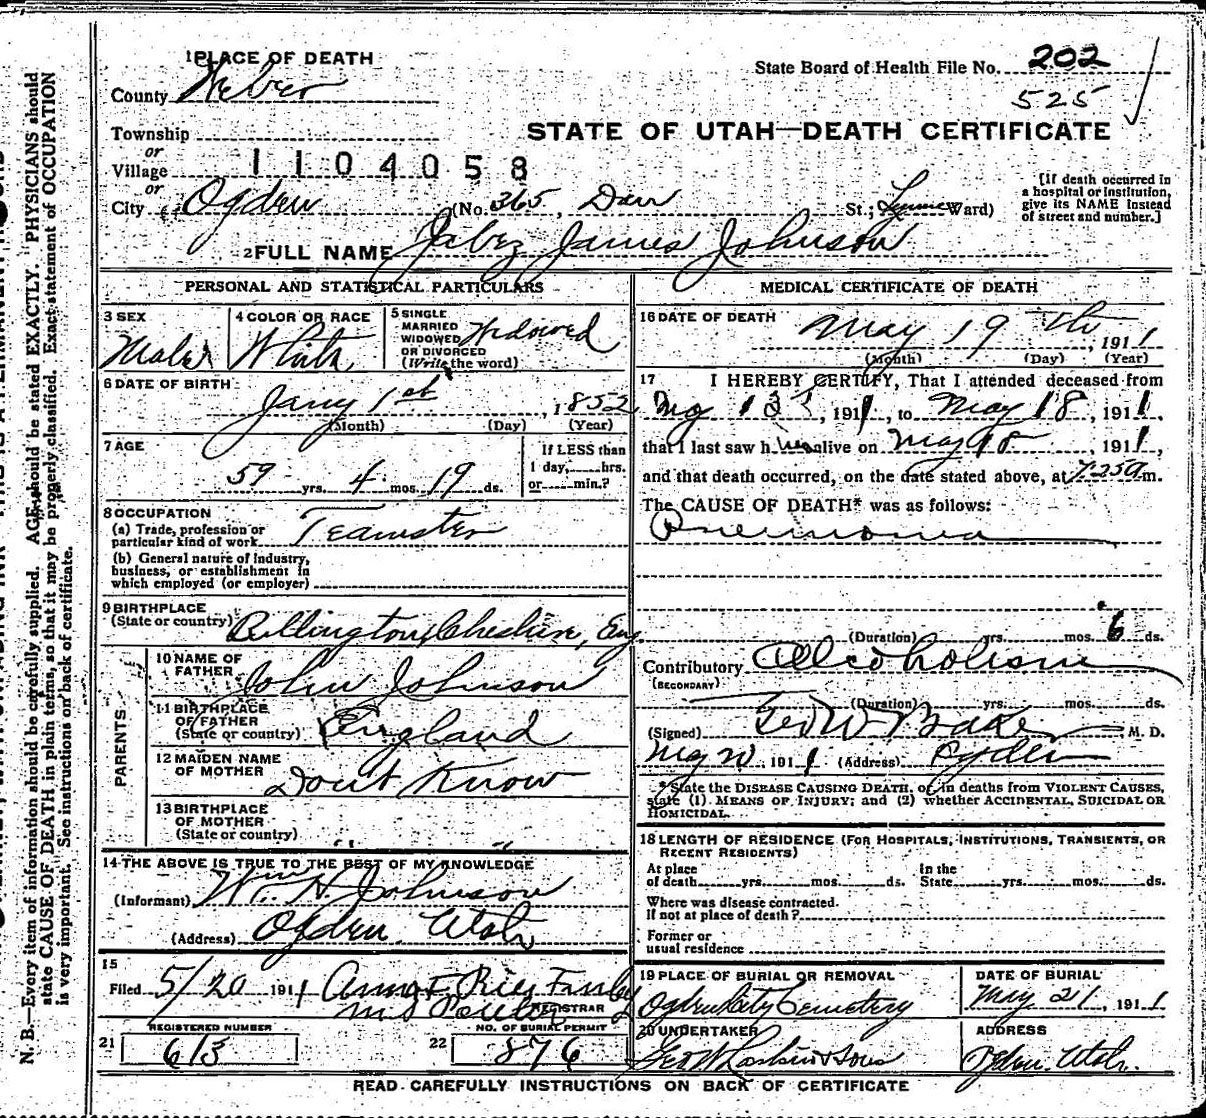 1 PLACE OF DEATH
County Weber
State Board of Health File No. 202
525
Township
or
Village
1104058
or
City Ogden (No. 365, Dan St.; Lynne Ward)
STATE OF UTAH—DEATH CERTIFICATE
[If death occurred in
a hospital or institution,
give its NAME instead
of street and number.]
2 FULL NAME Jabez James Johnson
PERSONAL AND STATISTICAL PARTICULARS
3 SEX
Male
4 COLOR OR RACE
White
5 SINGLE
MARRIED
WIDOWED
OR DIVORCED
(Write the word)
Widowed
6 DATE OF BIRTH
Jany 1st, 1852
(Month) (Day) (Year)
7 AGE
59 yrs. 4 mos. 19 ds.
If LESS than
1 day, hrs.
or min.?
8 OCCUPATION
(a) Trade, profession or
particular kind of work
Teamster
(b) General nature of industry,
business, or establishment in
which employed (or employer)
9 BIRTHPLACE
(State or country) Cheshire, Eng.
PARENTS
10 NAME OF
FATHER
John Johnson
11 BIRTHPLACE
OF FATHER
(State or country) England
12 MAIDEN NAME
OF MOTHER
Dont Know
13 BIRTHPLACE
OF MOTHER
(State or country) " "
14 THE ABOVE IS TRUE TO THE BEST OF MY KNOWLEDGE
(Informant) Wm H Johnson
(Address) Ogden Utah
15
Filed 5/20 1911
REGISTRAR
REGISTERED NUMBER
21 613
NO. OF BURIAL PERMIT
22 876
MEDICAL CERTIFICATE OF DEATH
16 DATE OF DEATH
May 19th, 1911
(Month) (Day) (Year)
17 I HEREBY CERTIFY, That I attended deceased from
, 1911, to May 18, 1911,
that I last saw him alive on May 18, 1911,
and that death occurred, on the date stated above, at 7.25 a m.
The CAUSE OF DEATH* was as follows:
Pneumonia
(Duration) yrs. mos. 6 ds.
Contributory Alcoholism
(SECONDARY)
(Duration) yrs. mos. ds.
(Signed) Geo W Baker M. D.
1911 (Address) Ogden
*State the DISEASE CAUSING DEATH, or, in deaths from VIOLENT CAUSES,
state (1) MEANS OF INJURY; and (2) whether ACCIDENTAL, SUICIDAL OR
HOMICIDAL.
18 LENGTH OF RESIDENCE (FOR HOSPITALS, INSTITUTIONS, TRANSIENTS, OR
RECENT RESIDENTS)
At place
of death yrs. mos. ds.
In the
State yrs. mos. ds.
Where was disease contracted.
If not at place of death?
Former or
usual residence
19 PLACE OF BURIAL OR REMOVAL
Ogden City Cemetery
DATE OF BURIAL
May 21, 1911
20 UNDERTAKER
Geo W Larkin & Sons
ADDRESS
Ogden Utah.
READ CAREFULLY INSTRUCTIONS ON BACK OF CERTIFICATE
N. B.—Every item of information should be carefully supplied. AGE should be stated EXACTLY. PHYSICIANS should
state CAUSE OF DEATH in plain terms, so that it may be properly classified. Exact statement of OCCUPATION
is very important. See instructions on back of certificate.